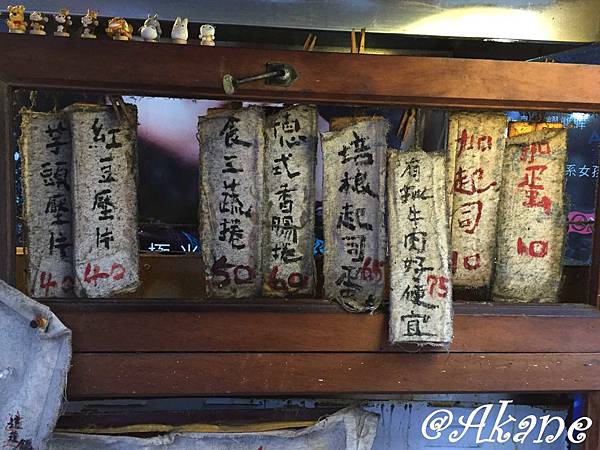 芋頭壓片
40
紅豆壓片
40
食三蔬捲
50
德式香腸捲
60
培根起司蛋
65
有機牛肉好便宜
75
加起司
10
加蛋
10
@Akane